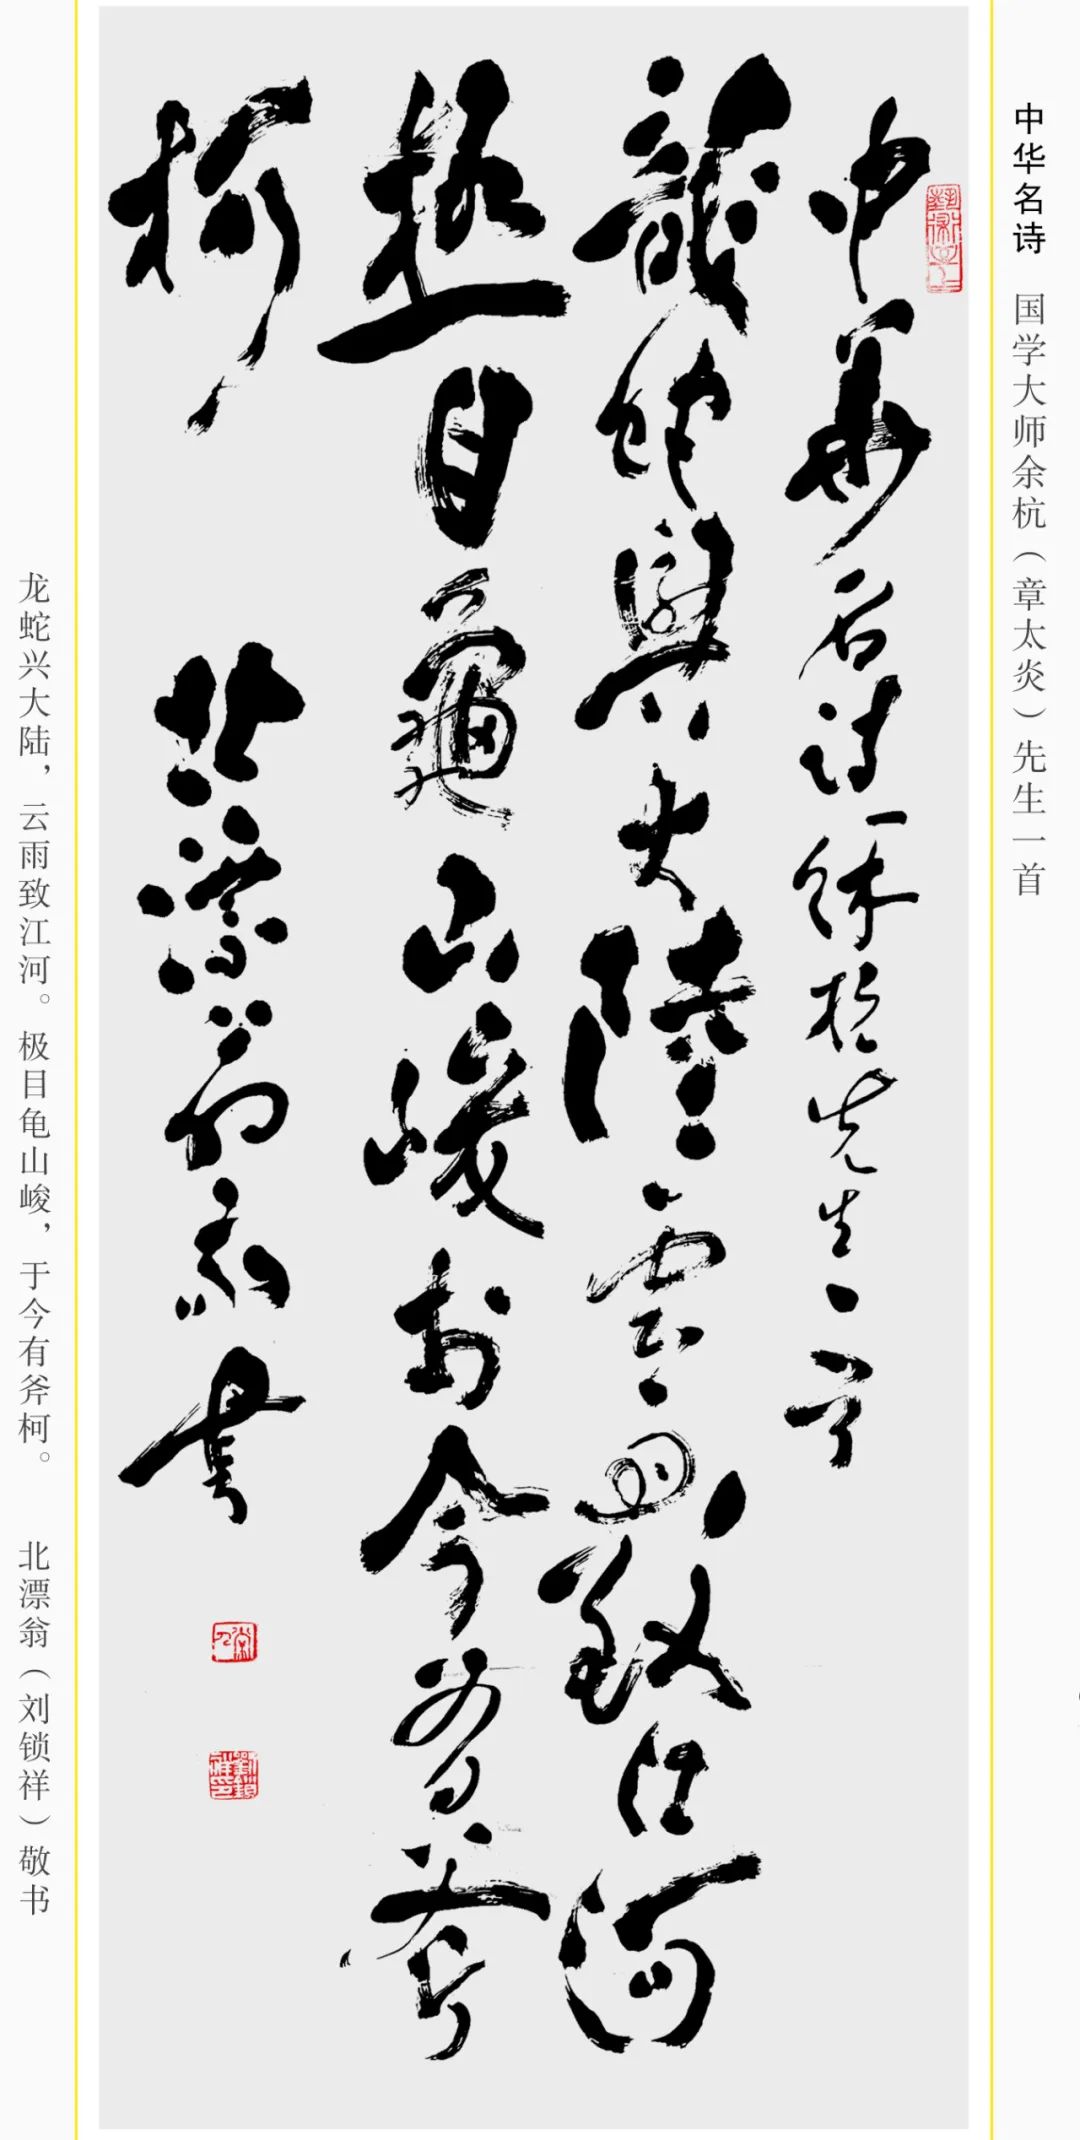 中华名诗 国学大师余杭（章太炎）先生一首
中華名诗 余杭先生一首
龍蛇興大陸雲雨致江河
極目龜山峻於今有斧
柯
北漂翁敬書
龙蛇兴大陆，云雨致江河。极目龟山峻，于今有斧柯。 北漂翁（刘锁祥）敬书